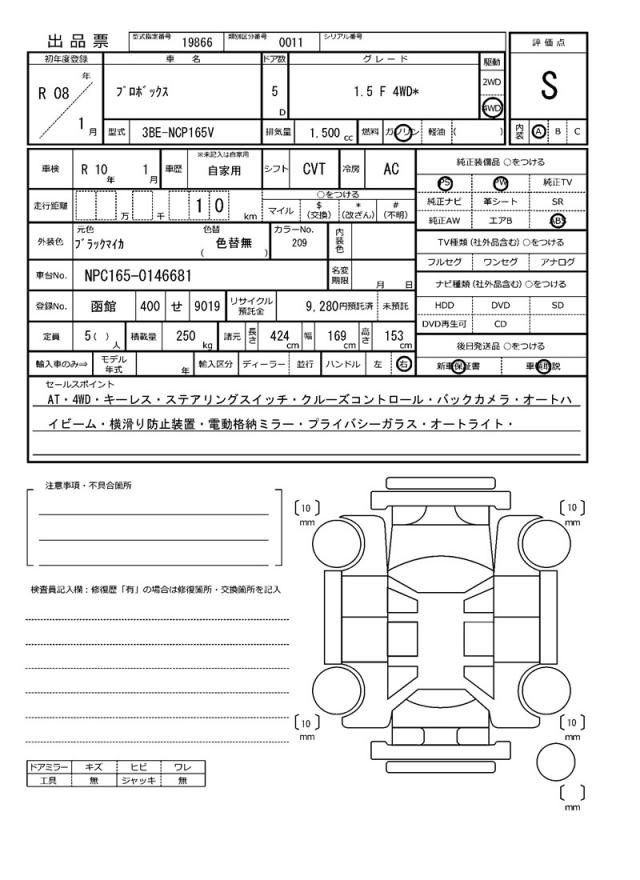 出品票 型式指定番号 19866 類別区分番号 0011 シリアル番号
評価点
S
初年度登録 車名 ドア数 グレード 駆動
R 08 年 1 月
ﾌﾟﾛﾎﾞｯｸｽ 5 D 1.5 F 4WD* 2WD 4WD
型式 3BE-NCP165V 排気量 1.500 cc 燃料 ガソリン 軽油 ( )
内装 A B C
車検 R 10 年 1 月 車歴 ※未記入は自家用 自家用 シフト CVT 冷房 AC
走行距離 万 千 1 0 km
○をつける
マイル $ (交換) * (改ざん) # (不明)
外装色 元色 ﾌﾞﾗｯｸﾏｲｶ 色替 ( 色替無 ) カラーNo. 209 内装色
車台No. NPC165-0146681 名変期限 月 日
登録No. 函館 400 せ 9019 リサイクル預託金 9,280円預託済 未預託
定員 5( ) 人 積載量 250 kg 諸元 長さ 424 cm 幅 169 cm 高さ 153 cm
輸入車のみ⇒ モデル年式 年 輸入区分 ディーラー 並行 ハンドル 左 右
純正装備品 ○をつける
PS PW 純正TV
純正ナビ 革シート SR
純正AW エアB ABS
TV種類 (社外品含む) ○をつける
フルセグ ワンセグ アナログ
ナビ種類 (社外品含む) ○をつける
HDD DVD SD
DVD再生可 CD
後日発送品 ○をつける
新車保証書 車輌取説
セールスポイント
AT・4WD・キーレス・ステアリングスイッチ・クルーズコントロール・バックカメラ・オートハ
イビーム・横滑り防止装置・電動格納ミラー・プライバシーガラス・オートライト・
注意事項・不具合箇所
検査員記入欄：修復歴「有」の場合は修復箇所・交換箇所を記入
ドアミラー キズ ヒビ ワレ
工具 無 ジャッキ 無
[10] mm
[10] mm
[10] mm
[10] mm
[ ] mm